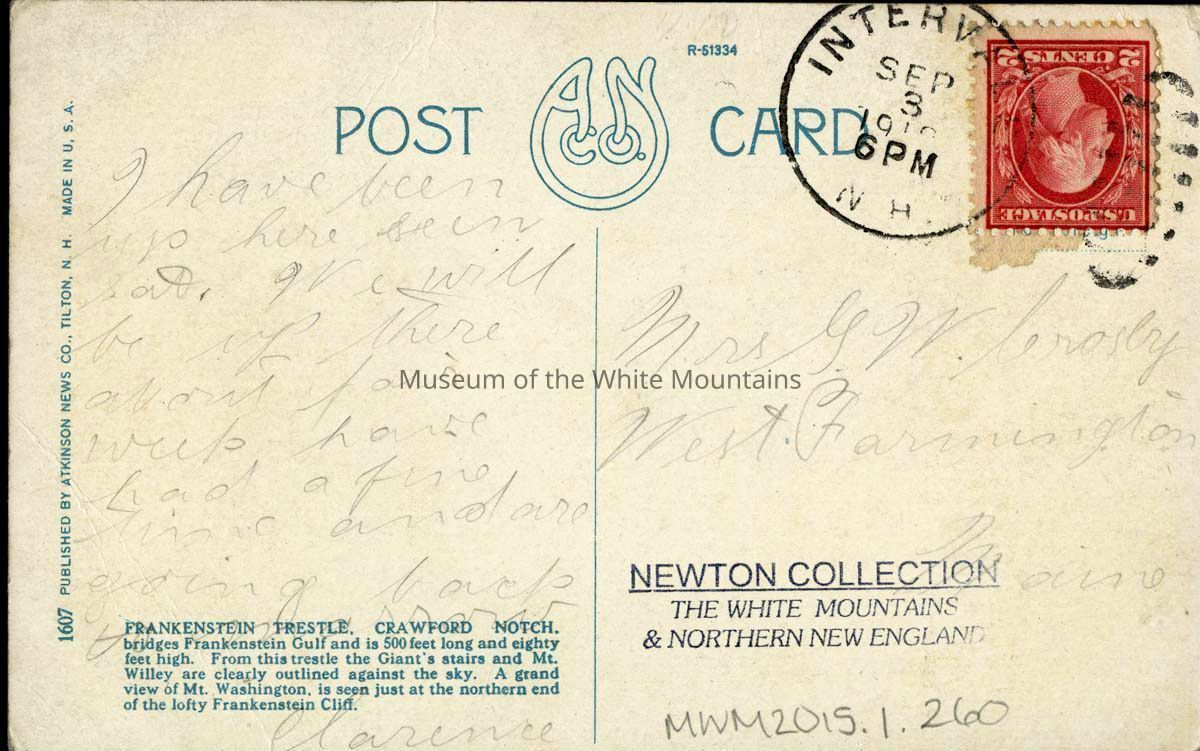 R-51334
POST CARD
A N Co.
INTERV
SEP
3
6 PM
N.H.
2 CENTS 2
U.S. POSTAGE
MADE IN U, S. A.
PUBLISHED BY ATKINSON NEWS CO., TILTON, N. H.
1607
I have been
up here
sat. We will
be there
about
week have
had a fine
time and are
going back
Clarence
Mrs G W. Crosby
West. Farmington
Maine
Museum of the White Mountains
FRANKENSTEIN TRESTLE, CRAWFORD NOTCH,
bridges Frankenstein Gulf and is 500 feet long and eighty
feet high. From this trestle the Giant's stairs and Mt.
Willey are clearly outlined against the sky. A grand
view of Mt. Washington, is seen just at the northern end
of the lofty Frankenstein Cliff.
NEWTON COLLECTION
THE WHITE MOUNTAINS
& NORTHERN NEW ENGLAND
MWM2015.1.260